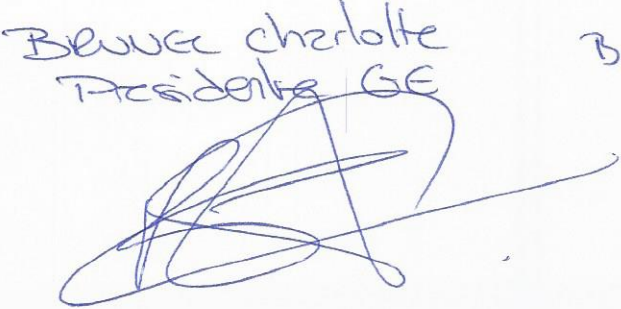 Brunner Charlotte
Présidente GE
B